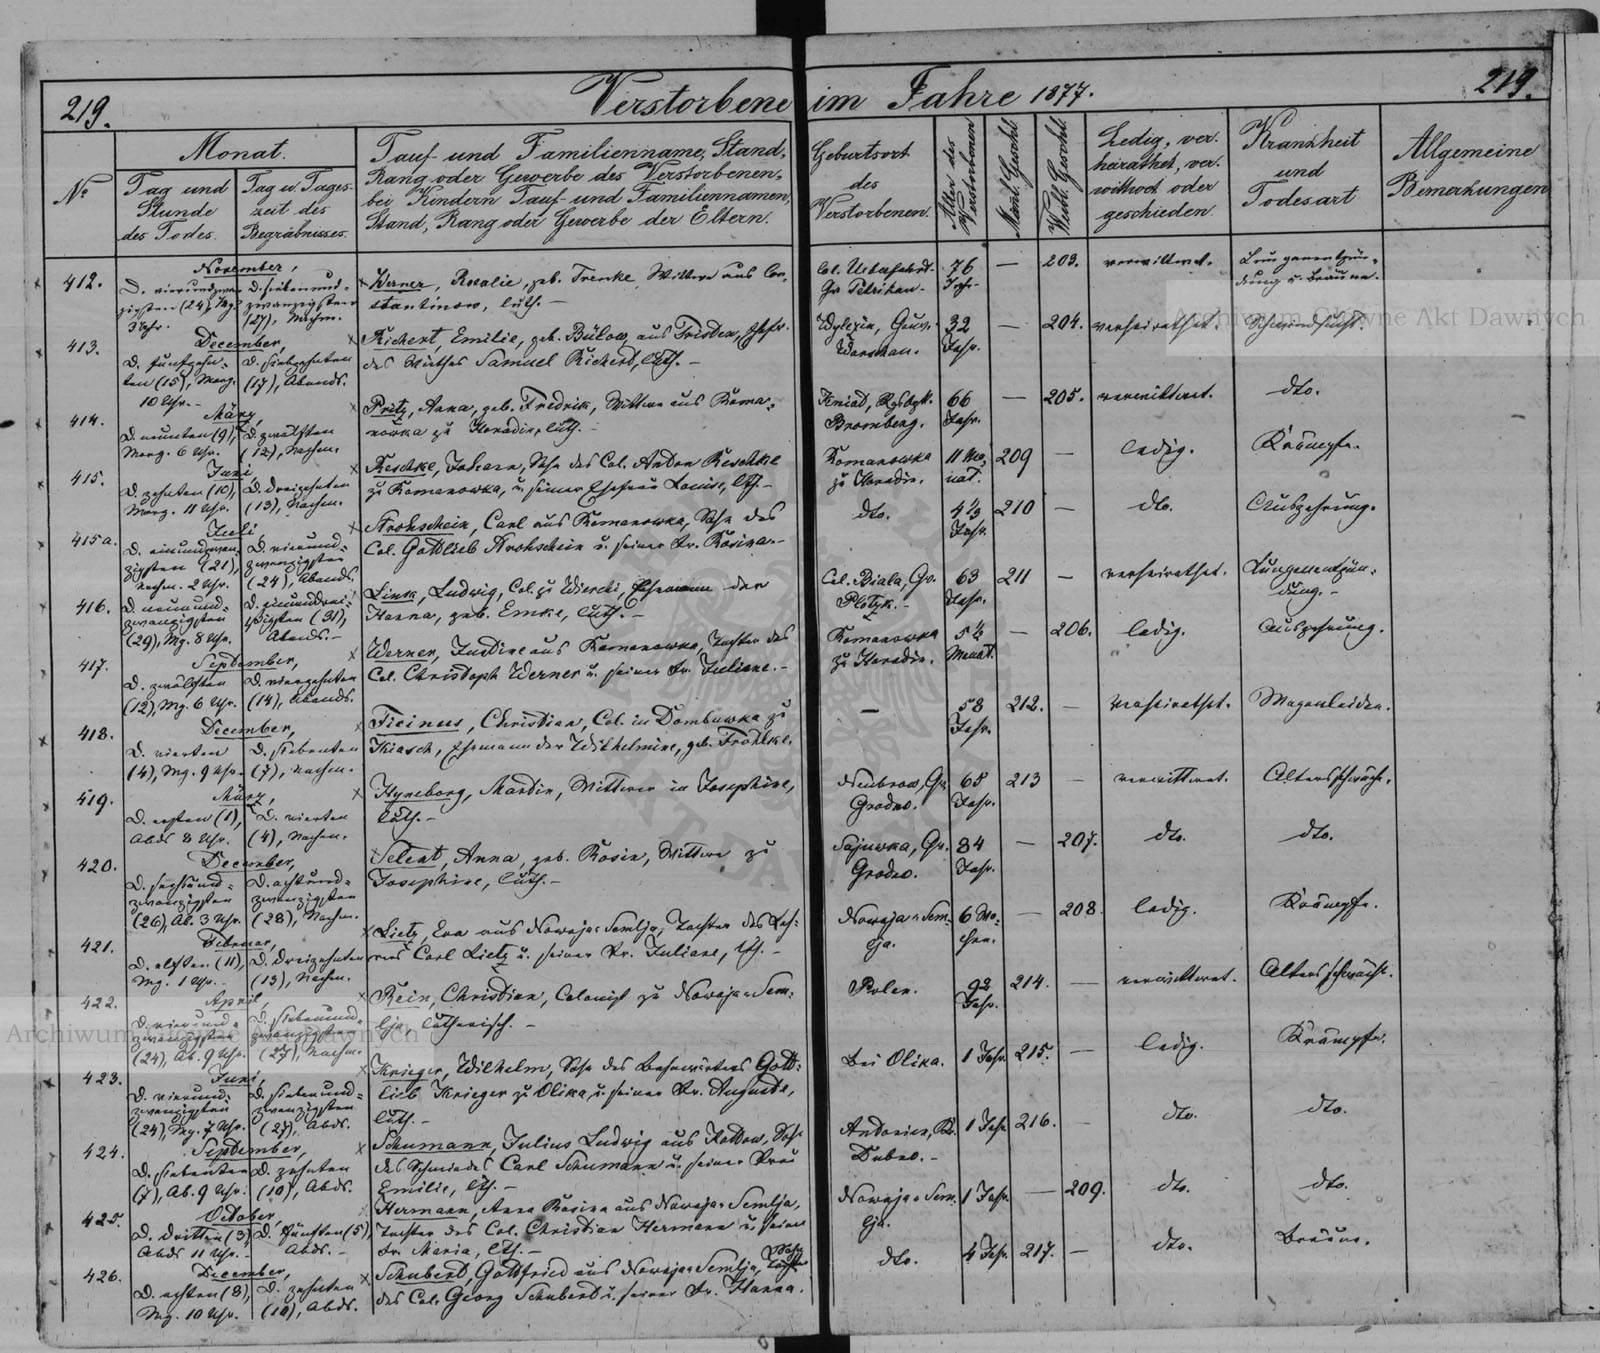 219.
Verstorbene im Jahre 1877.
219.
No
Monat.
Tag und Stunde des Todes.
Tag u. Tages-zeit des Begräbnisses.
Tauf- und Familienname, Stand,
Rang oder Gewerbe des Verstorbenen,
bei Kindern Tauf- und Familiennamen,
Stand, Rang oder Gewerbe der Eltern.
Geburtsort
des
Verstorbenen.
Alter des Verstorbenen
Männl. Geschl.
Weibl. Geschl.
Ledig, ver-
heirathet, ver-
wittwet oder
geschieden
Krankheit
und
Todesart
Allgemeine
Bemerkungen
412.
November,
D. vierundzwan-
zigsten (24), Mg.
3 Uhr.
D. siebenund-
zwanzigsten
(27), Nachm.
Werner, Rosalie, geb. Frenke, Wittwe aus Con-
stantinow, luth. —
Gv. Petrikau.
76
Jahr.
—
203.
verwittwet.
Lungenentzün-
dung u. Bräune.
413.
December,
D. fünfzehn-
ten (15), Morg.
10 Uhr. —
D. siebzehnten
(17), Abends.
Richert, Emilie, geb. Bülow, aus Josephine, Ehefr.
des Wirthes Samuel Richert, luth. —
Gouv.
Warschau.
32
Jahr.
—
204.
verheirathet.
Schwindsucht.
414.
März,
D. neunten (9),
Morg. 6 Uhr.
D. zwölften
(12), Nachm.
Pritz, Anna, geb. Fredrik, Wittwe aus Roma-
nowka zu Horodin, luth. —
Bromberg.
66
Jahr.
—
205.
verwittwet.
dto.
415.
Juni
D. zehnten (10),
Morg. 11 Uhr.
D. dreizehnten
(13), Nachm.
Reschke, Johann, Sohn des Col. Anton Reschke
zu Romanowka, u. seiner Ehefrau Louise, lth. —
Romanowka
zu Horodin.
11 Mo-
nat.
209
—
ledig.
Krämpfe.
415a.
Juli
D. einundzwan-
zigsten (21),
Nachm. 2 Uhr.
D. vierund-
zwanzigsten
(24), Abends.
Strohschein, Carl aus Romanowka, Sohn des
Col. Gottlieb Strohschein u. seiner Fr. Rosina. —
dto.
4½
Jahr.
210
—
dto.
Auszehrung.
416.
D. neunund-
zwanzigsten
(29), Mg. 8 Uhr.
D. einunddrei-
ßigsten (31),
Abends. —
Link, Ludwig, Col. zu Ehemann der
Hanna, geb. Emke, luth. —
Col. Biala, Gv.
Plotzk. —
63
Jahr.
211
—
verheirathet.
Lungenentzün-
dung. —
417.
September,
D. zwölften
(12), Mg. 6 Uhr.
D. vierzehnten
(14), Abends.
Werner, Justine aus Romanowka, Tochter des
Col. Christoph Werner u. seiner Fr. Juliane. —
Romanowka
zu Horodin.
5½
Monat.
—
206.
ledig.
Auszehrung.
418.
December,
D. vierten
(4), Mg. 9 Uhr.
D. siebenten
(7), Nachm.
Ticinus, Christian, Col. in Dombuwka zu
Kiasch, Ehemann der Wilhelmine, geb. Frohlke.
—
58
Jahr.
212.
—
verheirathet.
Magenleiden.
419.
März,
D. ersten (1),
Abds 8 Uhr.
D. vierten
(4), Nachm.
Hyneborg, Martin, Wittwer in Josephine,
luth. —
Gv.
Grodno.
68
Jahr.
213
—
verwittwet.
Altersschwäche.
420.
December,
D. sechsund-
zwanzigsten
(26), Ab. 3 Uhr.
D. achtund-
zwanzigsten
(28), Nachm.
Selent, Anna, geb. Rosin, Wittwe zu
Josephine, luth. —
Sajuwka, Gv.
Grodno.
84
Jahr.
—
207.
dto.
dto.
421.
Februar,
D. elften (11),
Mg. 1 Uhr.
D. dreizehnten
(13), Nachm.
Lietz, Eva aus Nowaja-Semlja, Tochter des Leh-
rers Carl Lietz u. seiner Fr. Juliane, lth. —
Nowaja-Sem-
lja.
6 Mo-
nate.
—
208.
ledig.
Krämpfe.
422.
April,
D. vierund-
zwanzigsten
(24), Ab. 9 Uhr.
D. siebenund-
zwanzigsten
(27), Nachm.
Rein, Christian, Colonist zu Nowaja-Sem-
lja, lutherisch. —
Polen.
92
Jahr.
214.
—
verwittwet.
Altersschwäche.
423.
Juni,
D. vierund-
zwanzigsten
(24), Mg. 7 Uhr.
D. siebenund-
zwanzigsten
(27), Abds.
Krieger, Wilhelm, Sohn des Bahnwärters Gott-
lieb Krieger zu Olika, u. seiner Fr. Auguste,
luth. —
Bei Olika.
1 Jahr
215.
—
ledig.
Krämpfe.
424.
September,
D. siebenten
(7), Ab. 9 Uhr.
D. zehnten
(10), Abds.
Schumann, Julius Ludwig aus Sohn
des Schmiedes Carl Schumann u. seiner Frau
Emilie, lth. —
Dubno. —
1 Jahr
216.
—
dto.
dto.
425.
October,
D. dritten (3),
Abds 11 Uhr. —
D. fünften (5),
Abds. —
Hermann, Anna Rosina aus Nowaja-Semlja,
Tochter des Col. Christian Hermann u. seiner
Fr. Maria, lth. —
Nowaja-Sem-
lja.
1 Jahr.
—
209.
dto.
dto.
426.
December,
D. achten (8),
Mg. 10 Uhr.
D. zehnten
(10), Abds.
Schubert, Gottfried aus Nowaja-Semlja, Sohn
des Col. Georg Schubert u. seiner Fr. Hanna.
dto.
4 Jahr
217.
—
dto.
Bräune.
Archiwum Główne Akt Dawnych
Archiwum Główne Akt Dawnych